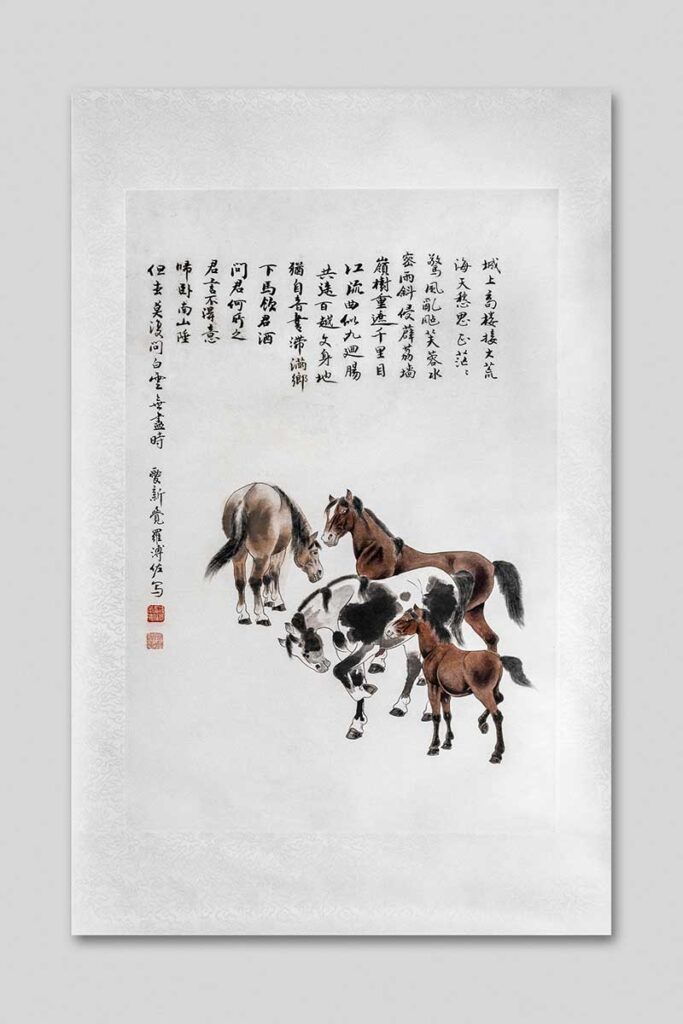 城上高楼接大荒
海天愁思正茫〻
驚風亂颭芙蓉水
密雨斜侵薜荔墙
嶺樹重遮千里目
江流曲似九迴腸
共百越文身地
猶自音書滞满鄉
下馬飲君酒
問君何所之
君言不得意
歸卧南山陲
但去莫復問白雲無盡時 愛新覺羅溥佐写